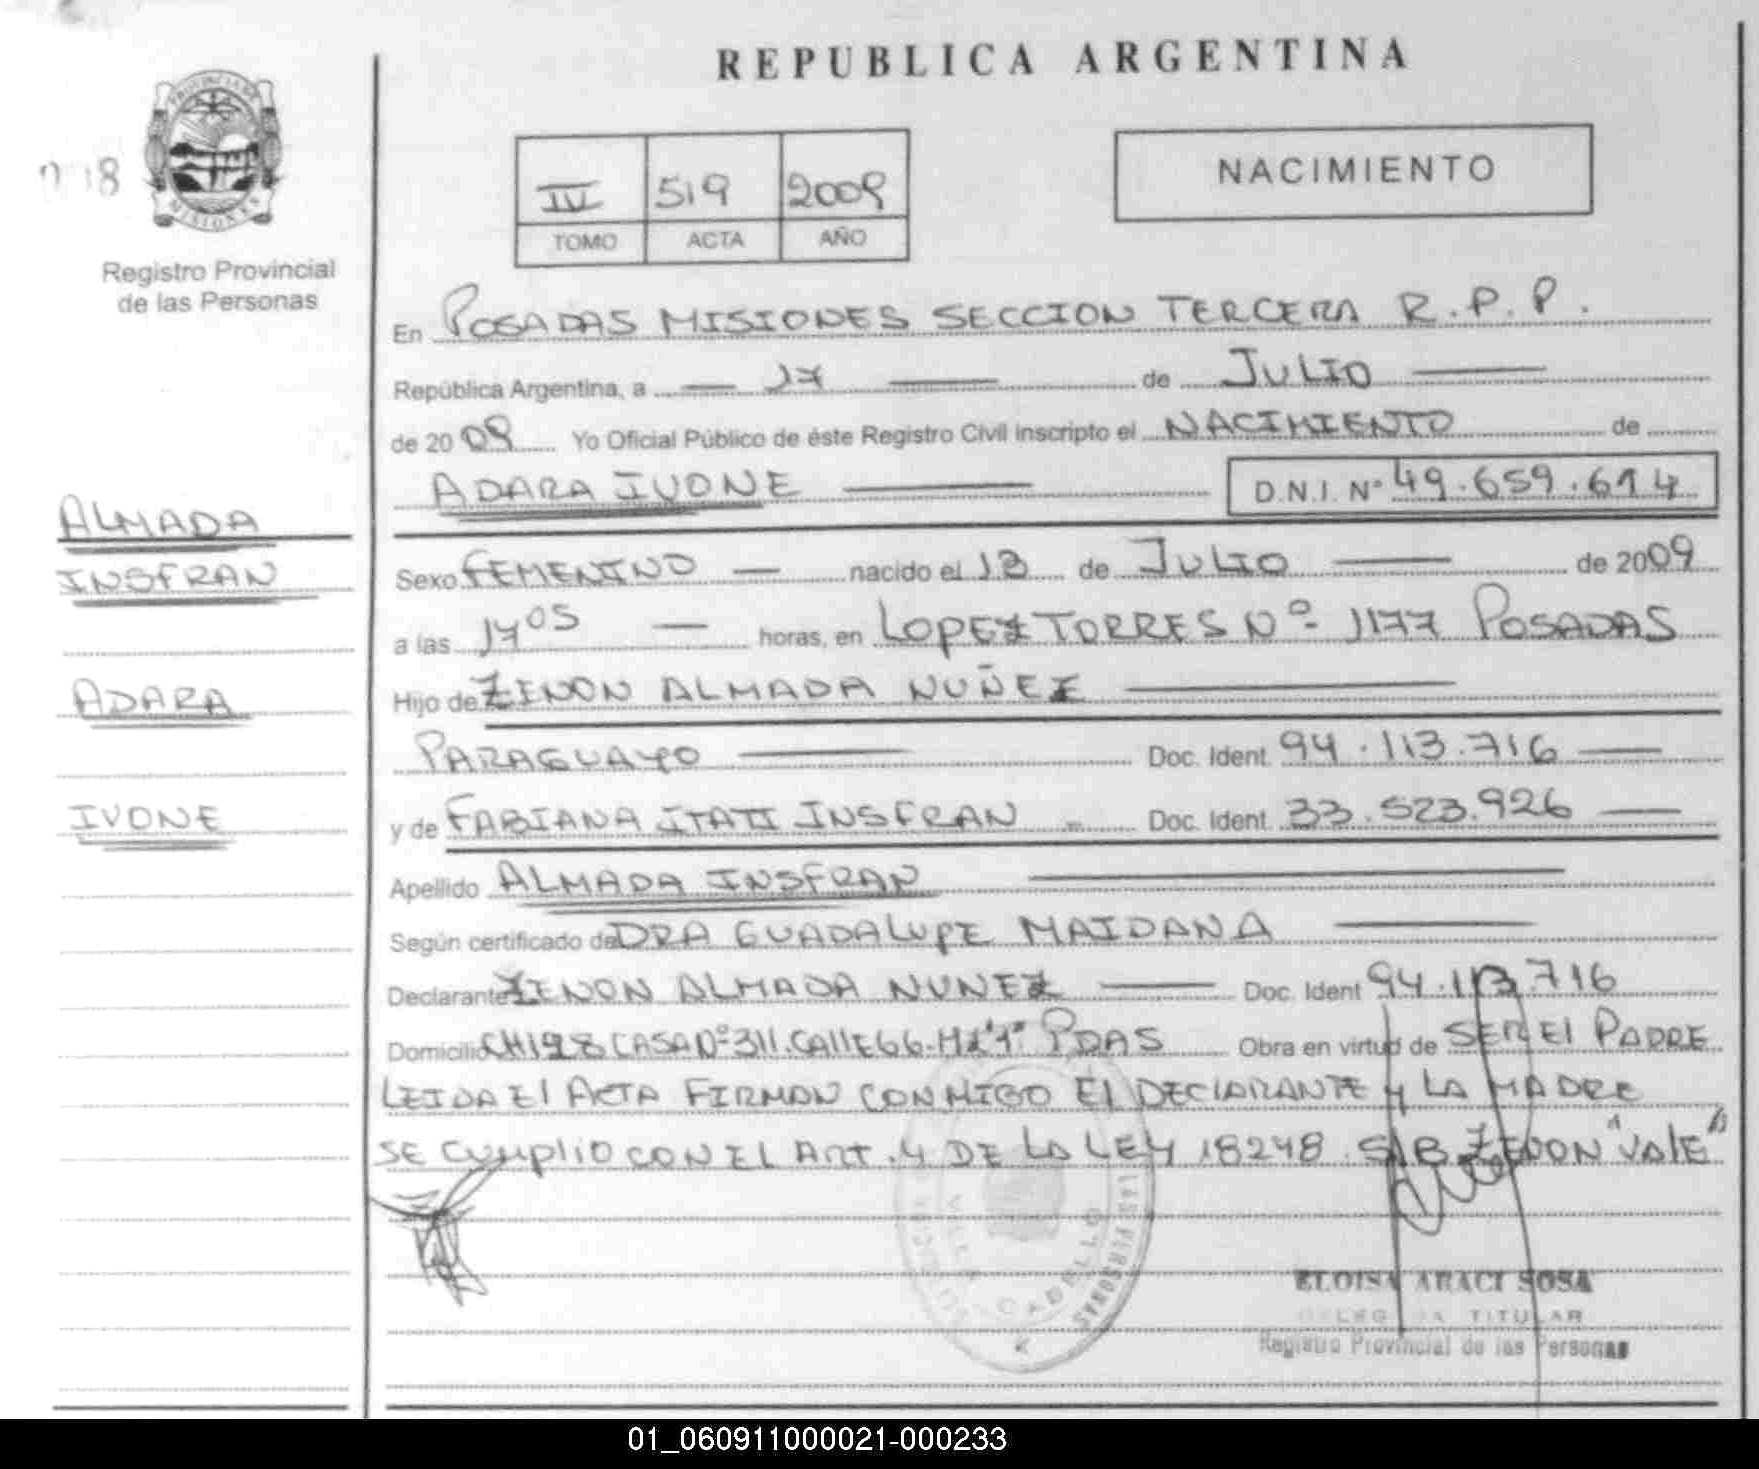 REPUBLICA ARGENTINA
PROVINCIA DE
MISIONES
18
Registro Provincial
de las Personas
IV 519 2009
TOMO ACTA AÑO
NACIMIENTO
En POSADAS MISIONES SECCION TERCERA R.P.P.
República Argentina, a — 17 — de JULIO —
de 2009 Yo Oficial Público de éste Registro Civil inscripto el NACIMIENTO de
ADARA IVONE — D.N.I. Nº 49.659.614
ALMADA
INSFRAN
ADARA
IVONE
Sexo FEMENINO — nacido el 13 de JULIO — de 2009
a las 17 05 — horas, en LOPEZ TORRES Nº 1177 POSADAS
Hijo de ZENON ALMADA NUÑEZ —
PARAGUAYO — Doc. Ident. 94.113.716 —
y de FABIANA ITATI INSFRAN - Doc. Ident. 33.523.926 —
Apellido ALMADA INSFRAN —
Según certificado de DRA GUADALUPE MAIDANA —
Declarante ZENON ALMADA NUNEZ — Doc. Ident 94.113.716
Domicilio CH198 CASA Nº 311.CAllE66-Mz"1" PDAS Obra en virtud de SER El PADRE
LEIDA El ACTA FIRMAN CONMIGO El DECLARANTE y LA MADRE
SE CUMPLIO CON EL ART.4 DE LA LEY 18248. S/B ZENON "VALE"
LAS PERSONAS
CABELLO
ELOISA ARACI SOSA
DELEGADA TITULAR
Registro Provincial de las Personas
01_060911000021-000233